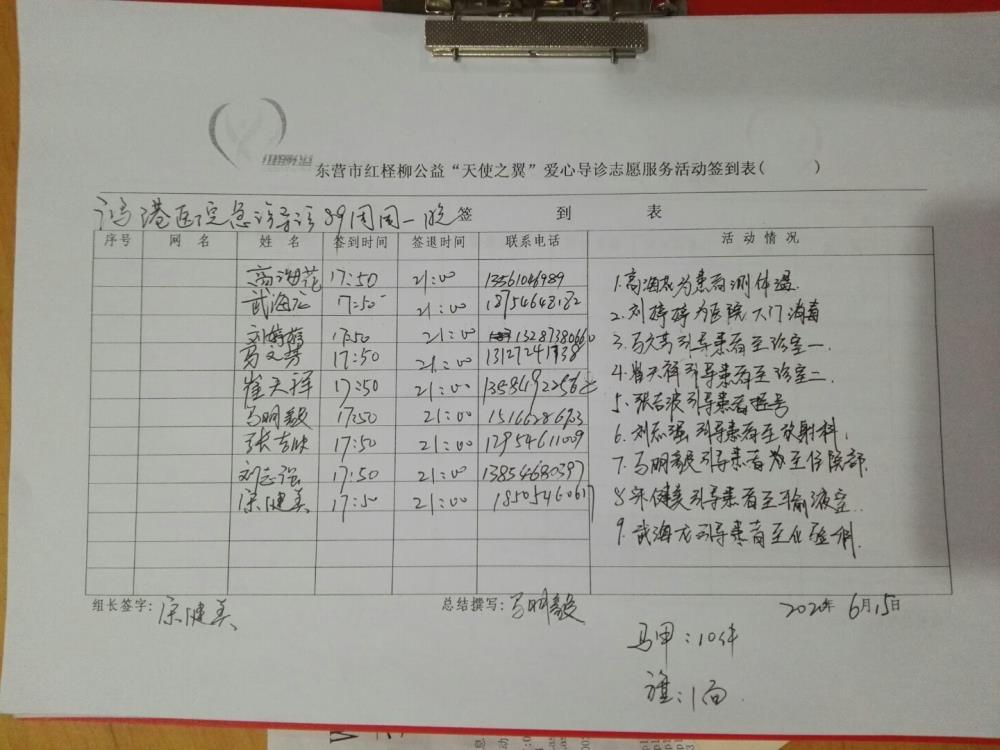 东营市红柽柳公益“天使之翼”爱心导诊志愿服务活动签到表( )
鸿港医院急诊导诊89周周一晚 签 到 表
序号 网 名 姓 名 签到时间 签退时间 联系电话 活 动 情 况
高海花 17:50 21:00 13561046989
武海龙 17:50 21:00 18754648182
刘婷婷 17:50 21:00 13287380660
马文芳 17:50 21:00 13127241738
崔天祥 17:50 21:00
马明毅 17:50 21:00
张吉波 17:50 21:00 12954611009
刘志强 17:50 21:00 13854680397
宋健美 17:50 21:00 18505460617
1.高海花为患者测体温.
2.刘婷婷为医院大门消毒
3.马文芳引导患者至诊室一.
4.崔天祥引导患者至诊室二.
5.张吉波引导患者挂号
6.刘志强引导患者至放射科,
7.马明毅引导患者 至住院部.
8.宋健美引导患者至输液室..
9.武海龙引导患者至化验科.
组长签字: 宋健美 总结撰写: 马明毅 2020年 6月15日
马甲:10件
旗:1面.